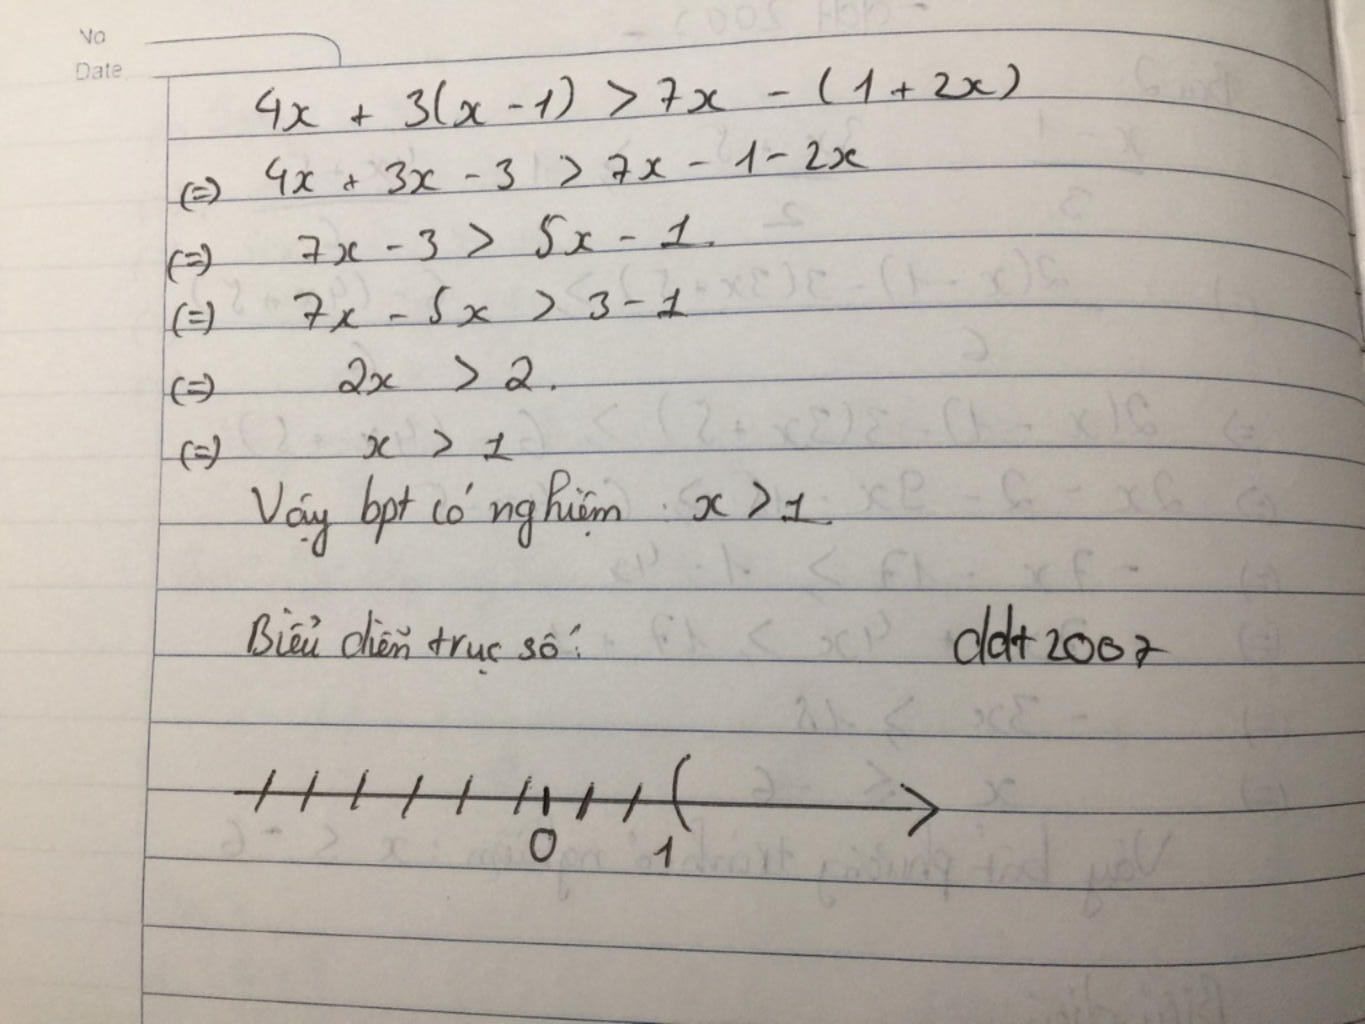 No
Date
4x + 3(x - 1) > 7x - (1 + 2x)
(=) 4x + 3x - 3 > 7x - 1 - 2x
(=) 7x - 3 > 5x - 1.
(=) 7x - 5x > 3 - 1
(=) 2x > 2.
(=) x > 1
Vậy bpt có nghiệm x > 1
Biểu diễn trục số: ddt2007
0 1